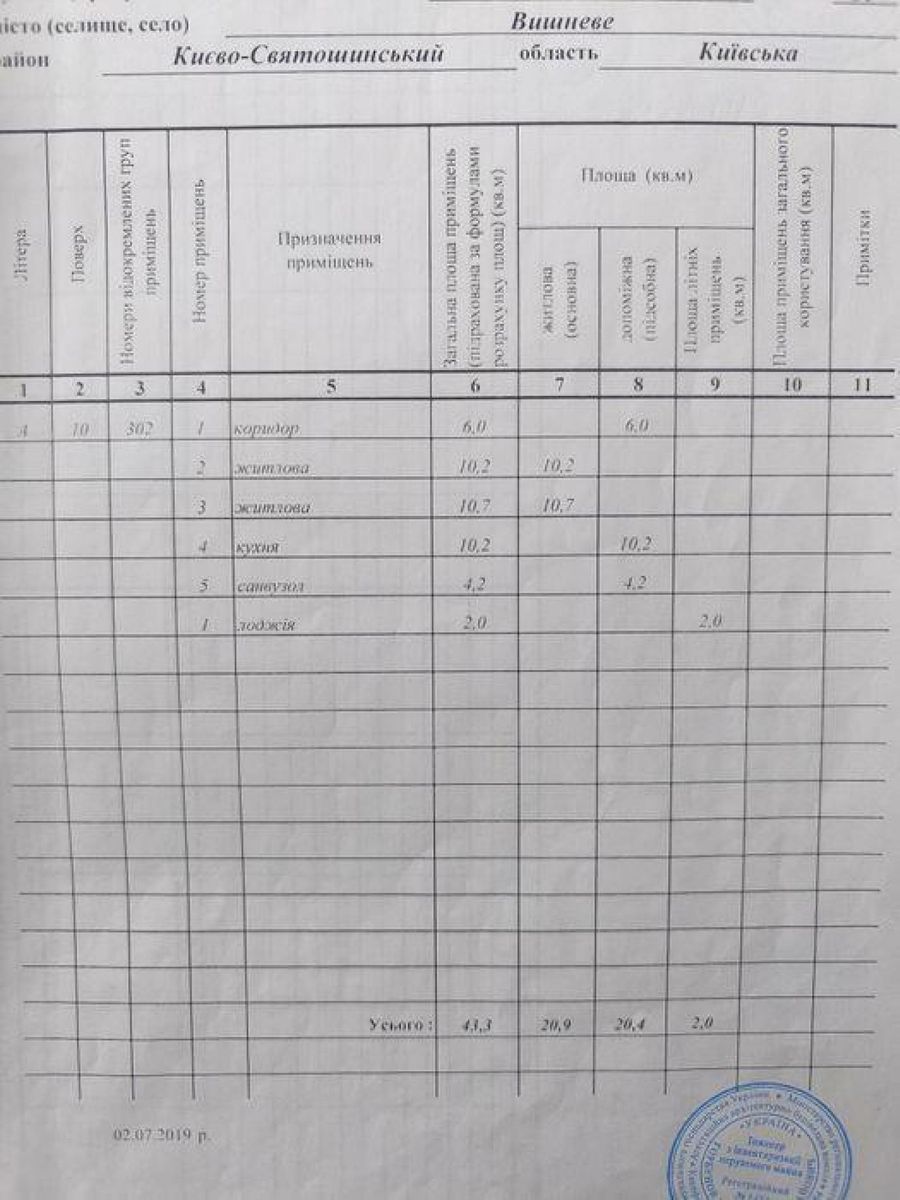 місто (селище, село) Вишневе
район Києво-Святошинський область Київська
Літера
Поверх
Номери відокремлених груп
приміщень
Номер приміщень
Призначення
приміщень
Загальна площа приміщень
(підрахована за формулами
розрахунку площ) (кв.м)
Площа (кв.м)
житлова
(основна)
допоміжна
(підсобна)
Площа літніх
приміщень
(кв.м)
Площа приміщень загального
користування (кв.м)
Примітки
1 2 3 4 5 6 7 8 9 10 11
А 10 302 1 коридор 6,0 6,0
2 житлова 10,2 10,2
3 житлова 10,7 10,7
4 кухня 10,2 10,2
5 санвузол 4,2 4,2
1 лоджія 2,0 2,0
Усього : 43,3 20,9 20,4 2,0
02.07.2019 р.
• УКРАЇНА •
Інженер
з інвентаризації
нерухомого майна